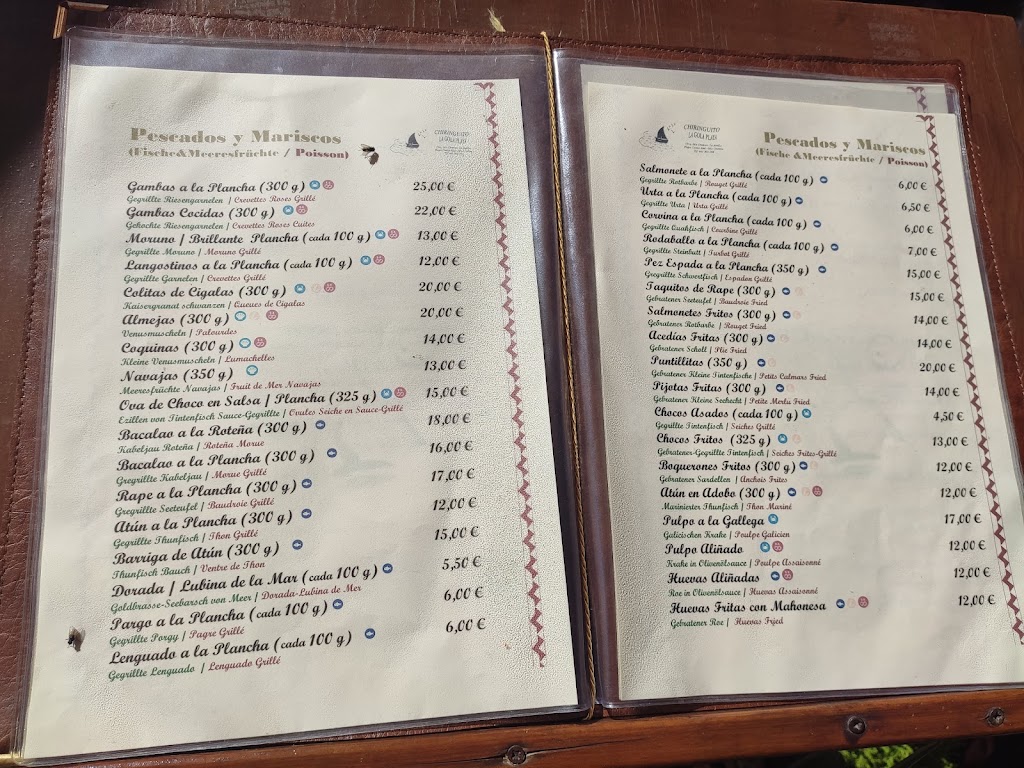 Pescados y Mariscos
(Fische&Meeresfrüchte / Poisson)
CHIRINGUITO
LA GOLA PLAYA
Gambas a la Plancha (300 g) 25,00 €
Gegrillte Riesengarnelen / Crevettes Roses Grillé
Gambas Cocidas (300 g) 22,00 €
Gekochte Riesengarnelen / Crevettes Roses Cuites
Moruno / Brillante Plancha (cada 100 g) 13,00 €
Gegrillte Moruno / Moruno Grillé
Langostinos a la Plancha (cada 100 g) 12,00 €
Gegrillte Garnelen / Crevettes Grillé
Colitas de Cigalas (300 g) 20,00 €
Kaisergranat schwanzen / Queues de Cigalas
Almejas (300 g) 20,00 €
Venusmuscheln / Palourdes
Coquinas (300 g) 14,00 €
Kleine Venusmuscheln / Lumachelles
Navajas (350 g) 13,00 €
Meeresfrüchte Navajas / Fruit de Mer Navajas
Ova de Choco en Salsa / Plancha (325 g) 15,00 €
Ezillen von Tintenfisch Sauce-Gegrillte / Ovales Seiche en Sauce-Grillé
Bacalao a la Roteña (300 g) 18,00 €
Kabeljau Roteña / Roteña Morue
Bacalao a la Plancha (300 g) 16,00 €
Gregrillte Kabeljau / Morue Grillé
Rape a la Plancha (300 g) 17,00 €
Gregrillte Seeteufel / Baudroie Grillé
Atún a la Plancha (300 g) 12,00 €
Gegrillte Thunfisch / Thon Grillé
Barriga de Atún (300 g) 15,00 €
Thunfisch Bauch / Ventre de Thon
Dorada / Lubina de la Mar (cada 100 g) 5,50 €
Goldbrasse-Seebarsch von Meer / Dorada-Lubina de Mer
Pargo a la Plancha (cada 100 g) 6,00 €
Gegrillte Porgy / Pagre Grillé
Lenguado a la Plancha (cada 100 g) 6,00 €
Gegrillte Lenguado / Lenguado Grillé
CHIRINGUITO
LA GOLA PLAYA
Pescados y Mariscos
(Fische &Meeresfrüchte / Poisson)
Salmonete a la Plancha (cada 100 g) 6,00 €
Gegrillte Rotbarbe / Rouget Grillé
Urta a la Plancha (cada 100 g) 6,50 €
Gegrillte Urta / Urta Grillé
Corvina a la Plancha (cada 100 g) 6,00 €
Gegrillte Guakfisch / Courbine Grillé
Rodaballo a la Plancha (cada 100 g) 7,00 €
Gegrillte Steinbutt / Turbot Grillé
Pez Espada a la Plancha (350 g) 15,00 €
Gregrillte Schwertfisch / Espadon Grillé
Taquitos de Rape (300 g) 15,00 €
Gebratener Seeteufel / Baudroie Fried
Salmonetes Fritos (300 g) 14,00 €
Gebratener Rotbarbe / Rouget Fried
Acedías Fritas (300 g) 14,00 €
Gebratener Scholl / Plie Fried
Puntillitas (350 g) 20,00 €
Gebratener Kleine Tintenfische / Petits Calmars Fried
Pijotas Fritas (300 g) 14,00 €
Gebratener Kleine Seehecht / Petite Merlu Fried
Chocos Asados (cada 100 g) 4,50 €
Gegrillte Tintenfisch / Seiches Grillé
Chocos Fritos (325 g) 13,00 €
Gebratener-Gegrillte Tintenfisch / Seiches Frites-Grillé
Boquerones Fritos (300 g) 12,00 €
Gebratener Sardellen / Anchois Frites
Atún en Adobo (300 g) 12,00 €
Marinierter Thunfisch / Thon Mariné
Pulpo a la Gallega 17,00 €
Galicischen Krake / Poulpe Galicien
Pulpo Aliñado 12,00 €
Krake in Olivenölsauce / Poulpe Assaisonné
Huevas Aliñadas 12,00 €
Roe in Olivenölsauce / Huevas Assaisonné
Huevas Fritas con Mahonesa 12,00 €
Gebratener Roe / Huevas Fried